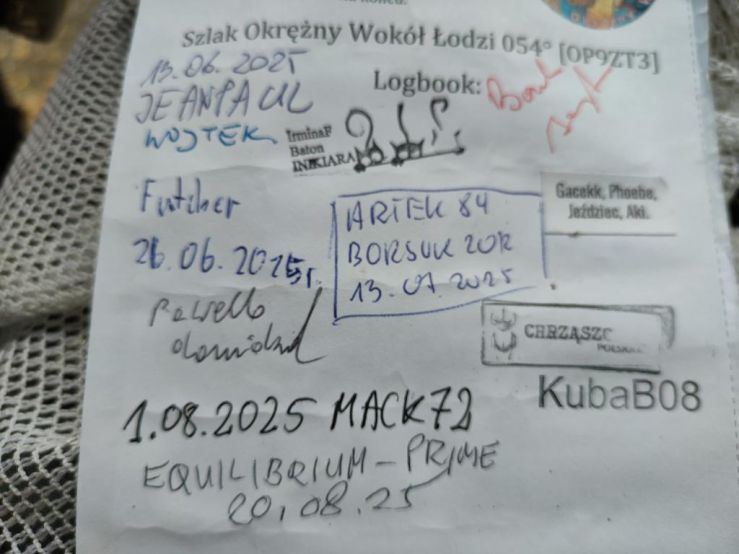 Szlak Okrężny Wokół Łodzi 054° [OP9ZT3]
Logbook:
13.06.2025
JEANPAUL
WOJTEK
IrminaF
Baton
INKIARA
Futcher
26.06.2025r.
ARTEK 84
BORSUK 2012
13.07.2025
Gacekk, Phoebe,
Jeździec, Aki.
Pawello
CHRZĄSZC
KubaB08
1.08.2025 MACK72
EQUILIBRIUM-PRIME
20.08.25